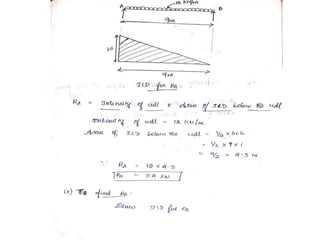 12 kN/m
A B
9m
1.0
9m
ILD for RA
RA = Intensity of udl x Area of ILD below the udl
Intensity of udl = 12 kN/m
Area of ILD below the udl = 1/2 x b x h
= 1/2 x 9 x 1
= 9/2 = 4.5 m
∵ RA = 12 x 4.5
RA = 54 kN
find RB
Draw ILD for RB